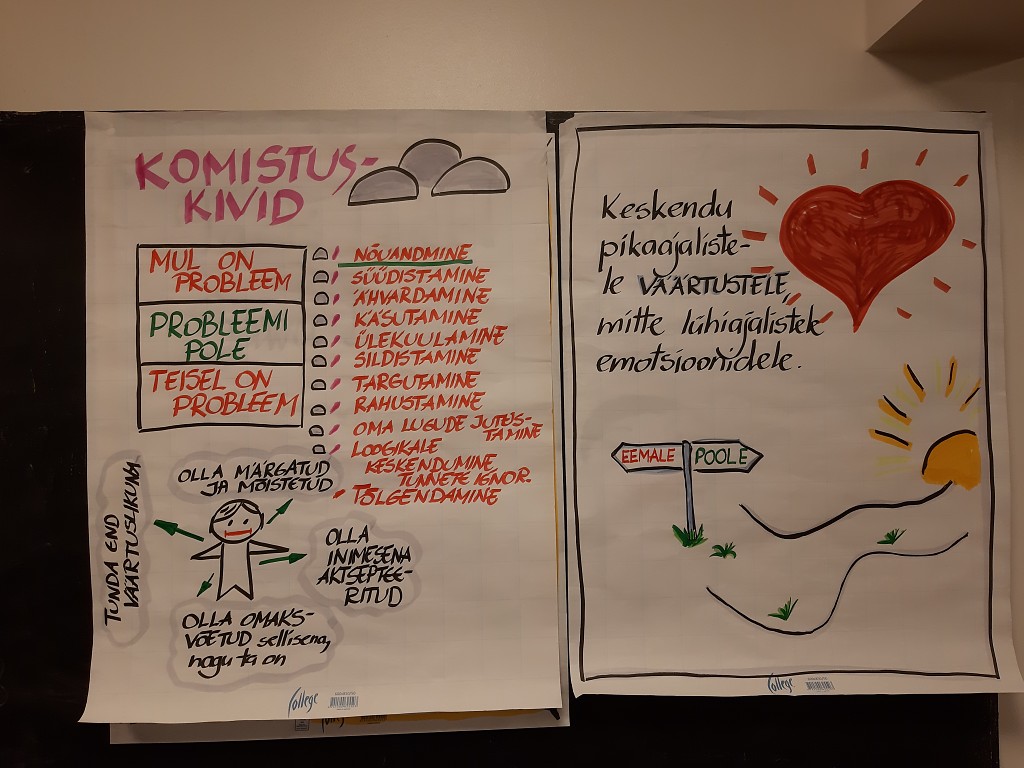 KOMISTUS-
KIVID
MUL ON
PROBLEEM
PROBLEEMI
POLE
TEISEL ON
PROBLEEM
NÕUANDMINE
SÜÜDISTAMINE
ÄHVARDAMINE
KÄSUTAMINE
ÜLEKUULAMINE
SILDISTAMINE
TARGUTAMINE
RAHUSTAMINE
OMA LUGUDE JUTUS-
TAMINE
LOOGIKALE
KESKENDUMINE
TUNNETE IGNOR.
TÕLGENDAMINE
OLLA MÄRGATUD
JA MÕISTETUD
TUNDA END
VÄÄRTUSLIKUNA
OLLA
INIMESENA
AKTSEPTEE-
RITUD
OLLA OMAKS-
VÕETUD sellisena,
nagu ta on
College
Keskendu
pikaajaliste-
le VÄÄRTUSTELE,
mitte lühiajalistele
emotsioonidele.
EEMALE POOLE
College